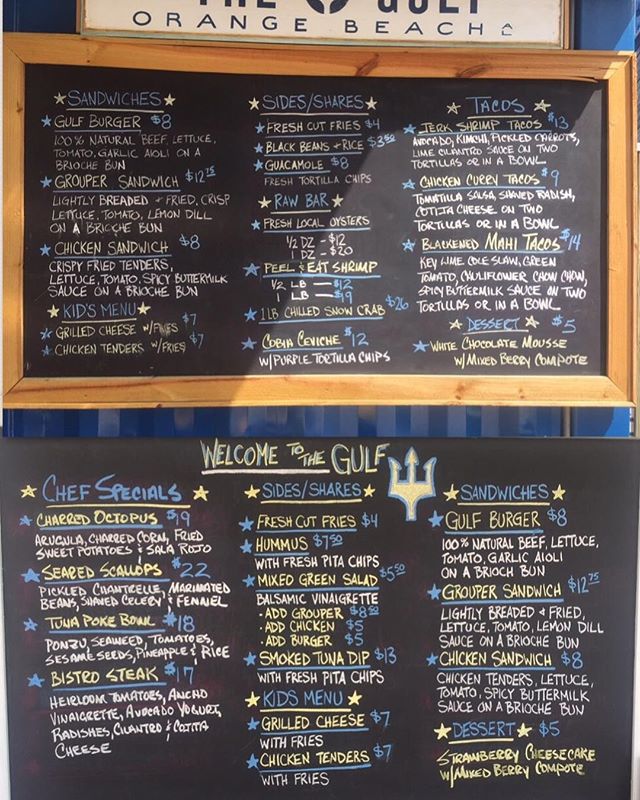 THE GULF
ORANGE BEACH
SANDWICHES
GULF BURGER $8
100% NATURAL BEEF, LETTUCE,
TOMATO, GARLIC AIOLI ON A
BRIOCHE BUN
GROUPER SANDWICH $12.75
LIGHTLY BREADED + FRIED, CRISP
LETTUCE, TOMATO, LEMON DILL
ON A BRIOCHE BUN
CHICKEN SANDWICH $8
CRISPY FRIED TENDERS,
LETTUCE, TOMATO, SPICY BUTTERMILK
SAUCE ON A BRIOCHE BUN
KID'S MENU
GRILLED CHEESE W/FRIES $7
CHICKEN TENDERS W/FRIES $7
SIDES/SHARES
FRESH CUT FRIES $4
BLACK BEANS + RICE $3.50
GUACAMOLE $8
FRESH TORTILLA CHIPS
RAW BAR
FRESH LOCAL OYSTERS
1/2 DZ - $12
1 DZ - $20
PEEL & EAT SHRIMP
1/2 LB - $12
1 LB - $19
1LB CHILLED SNOW CRAB $26
COBIA CEVICHE $12
W/PURPLE TORTILLA CHIPS
TACOS
JERK SHRIMP TACOS $13
AVOCADO, KIMCHI, PICKLED CARROTS,
LIME CILANTRO SAUCE ON TWO
TORTILLAS OR IN A BOWL
CHICKEN CURRY TACOS $9
TOMATILLA SALSA, SHAVED RADISH,
COTIJA CHEESE ON TWO
TORTILLAS OR IN A BOWL
BLACKENED MAHI TACOS $14
KEY LIME COLE SLAW, GREEN
TOMATO, CAULIFLOWER CHOW CHOW,
SPICY BUTTERMILK SAUCE ON TWO
TORTILLAS OR IN A BOWL
DESSERT $5
WHITE CHOCOLATE MOUSSE
W/MIXED BERRY COMPOTE
WELCOME TO THE GULF
CHEF SPECIALS
CHARRED OCTOPUS $19
ARUGULA, CHARRED CORN, FRIED
SWEET POTATOES & SALA ROJO
SEARED SCALLOPS $22
PICKLED CHANTRELLE, MARINATED
BEANS, SHAVED CELERY & FENNEL
TUNA POKE BOWL $18
PONZU, SEAWEED, TOMATOES,
SESAME SEEDS, PINEAPPLE & RICE
BISTRO STEAK $17
HEIRLOOM TOMATOES, ANCHO
VINAIGRETTE, AVOCADO YOGURT,
RADISHES, CILANTRO & COTITA
CHEESE
SIDES/SHARES
FRESH CUT FRIES $4
HUMMUS $7.50
WITH FRESH PITA CHIPS
MIXED GREEN SALAD $5.50
BALSAMIC VINAIGRETTE
- ADD GROUPER $8.50
- ADD CHICKEN $5
- ADD BURGER $5
SMOKED TUNA DIP $13
WITH FRESH PITA CHIPS
KIDS MENU
GRILLED CHEESE $7
WITH FRIES
CHICKEN TENDERS $7
WITH FRIES
SANDWICHES
GULF BURGER $8
100% NATURAL BEEF, LETTUCE,
TOMATO, GARLIC AIOLI
ON A BRIOCH BUN
GROUPER SANDWICH $12.75
LIGHTLY BREADED + FRIED,
LETTUCE, TOMATO, LEMON DILL
SAUCE ON A BRIOCHE BUN
CHICKEN SANDWICH $8
CHICKEN TENDERS, LETTUCE,
TOMATO, SPICY BUTTERMILK
SAUCE ON A BRIOCHE BUN
DESSERT $5
STRAWBERRY CHEESECAKE
W/MIXED BERRY COMPOTE